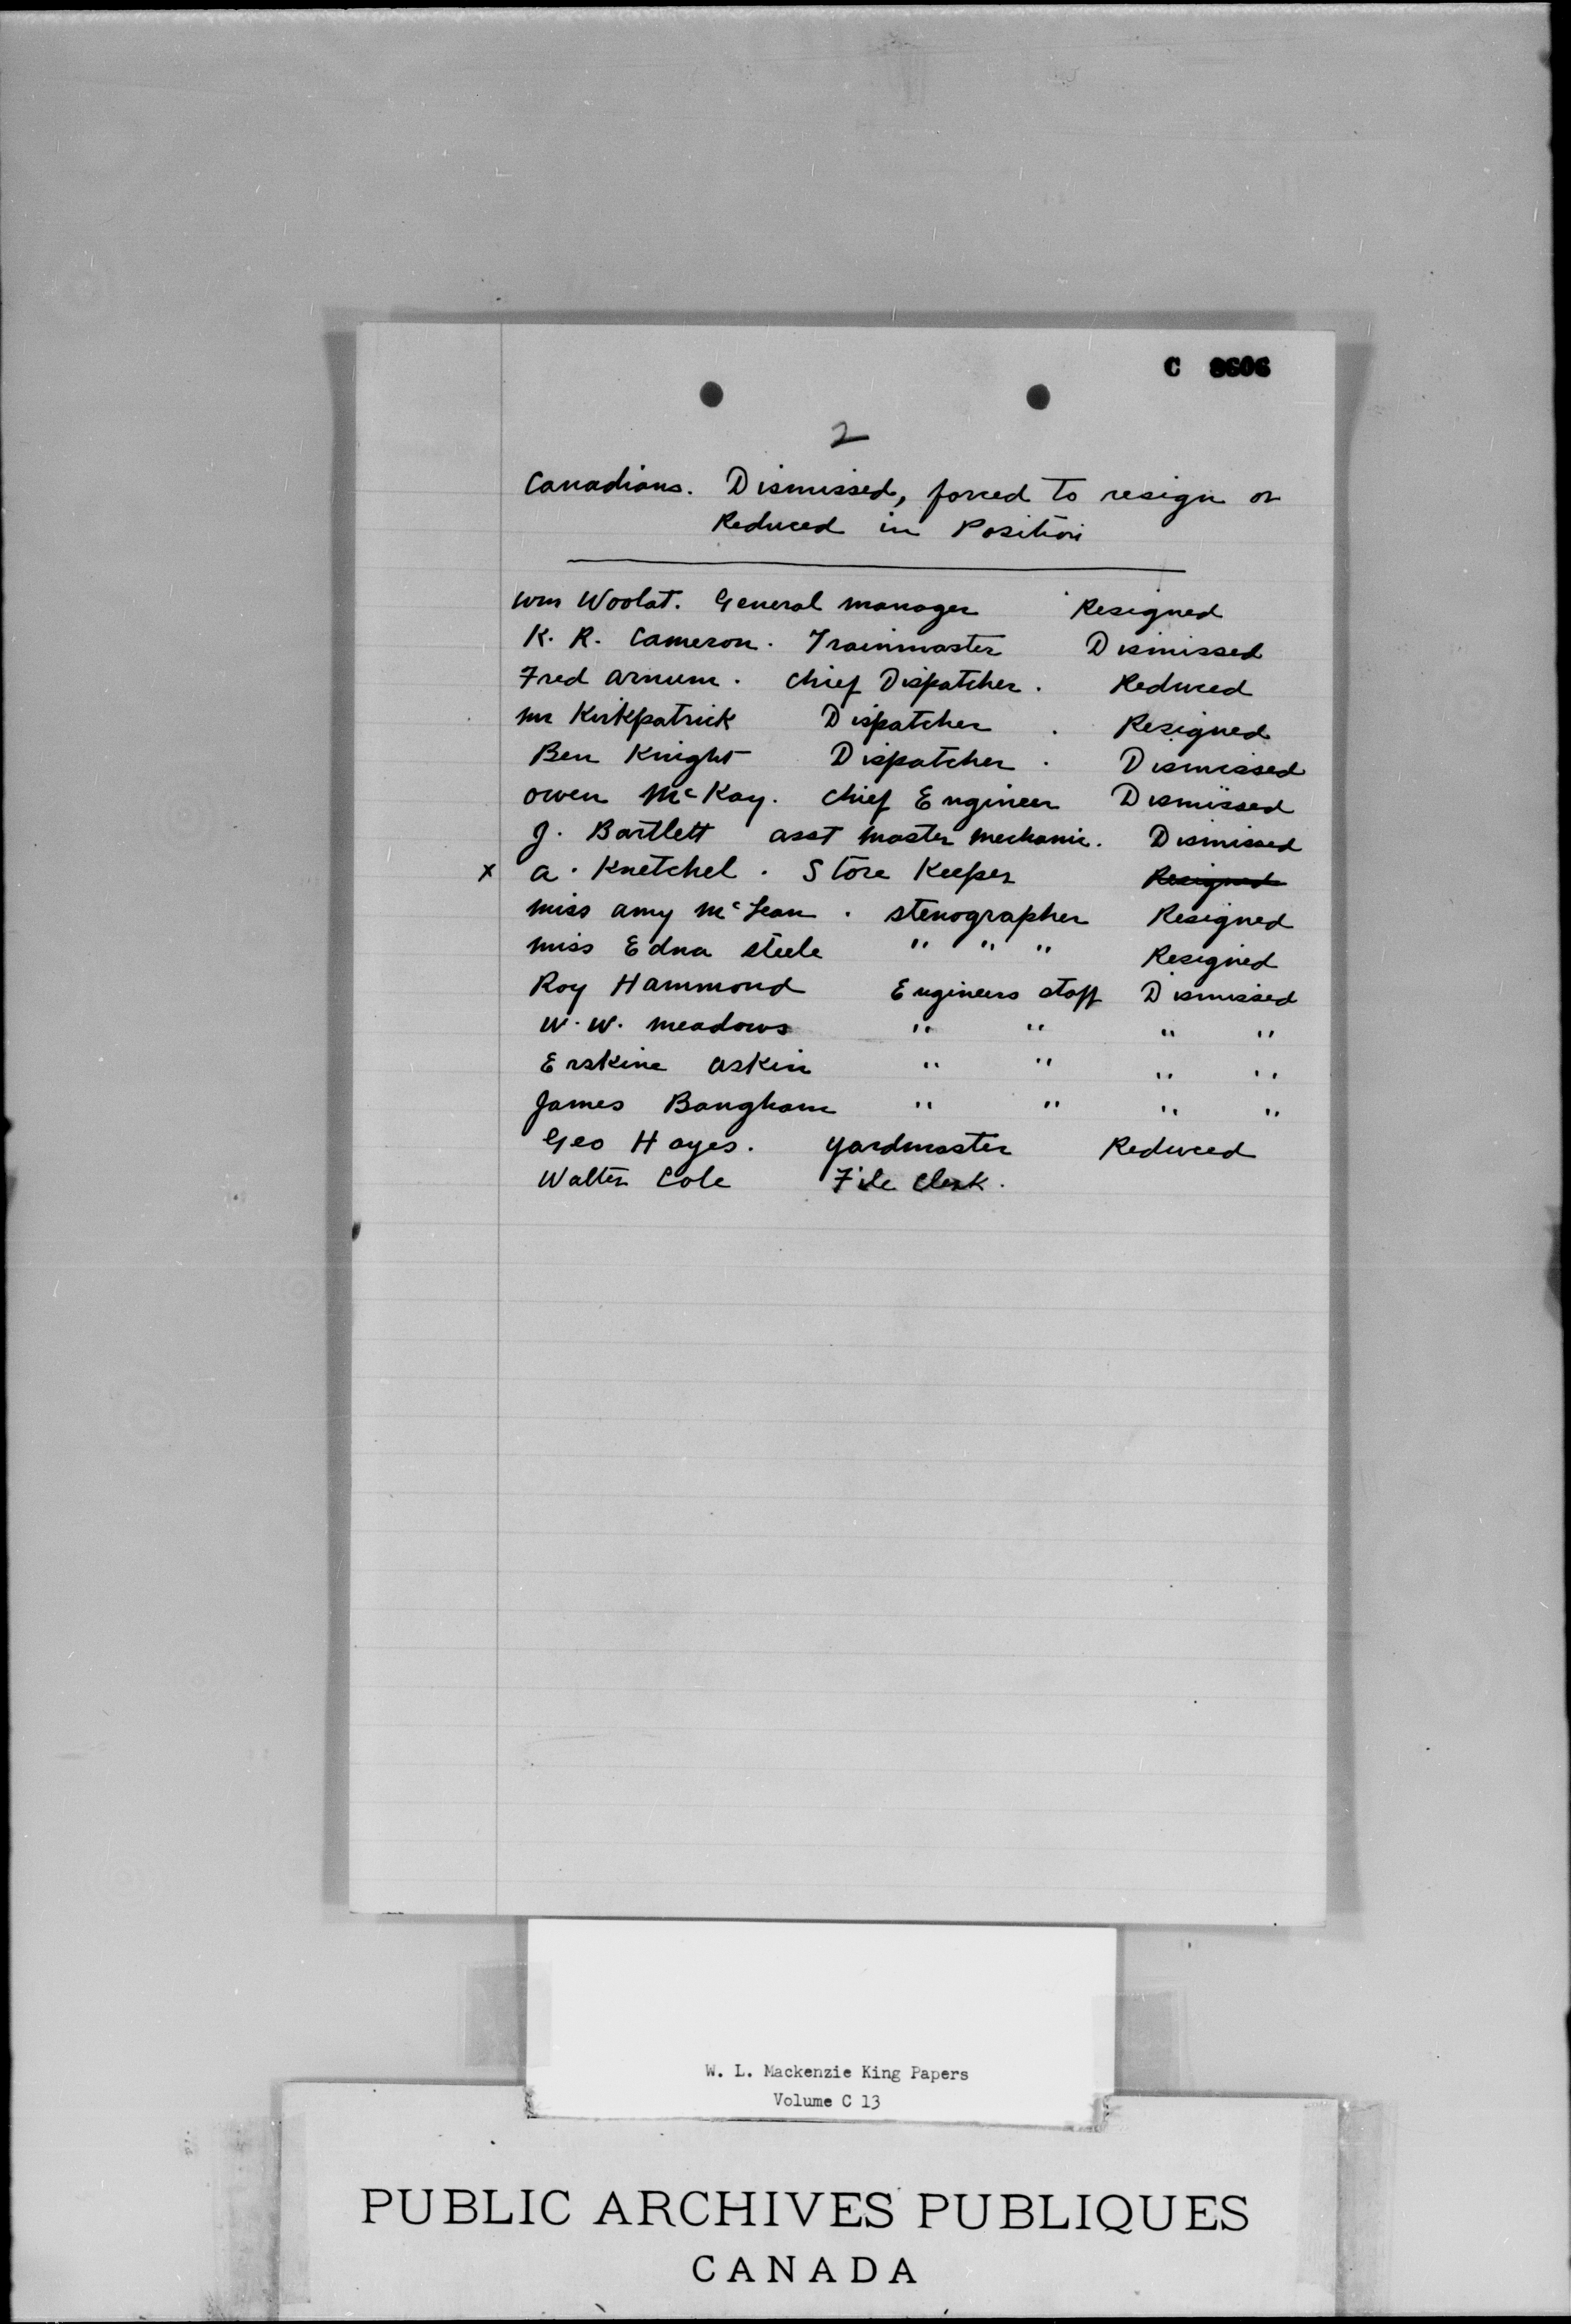 C 8606
2
Canadians. Dismissed, forced to resign or
Reduced in Position
Wm Woolat. General manager Resigned
K. R. Cameron. Trainmaster Dismissed
Fred Arnum. Chief Dispatcher. Reduced
Mr Kirkpatrick Dispatcher . Resigned
Ben Knight Dispatcher . Dismissed
Owen McKay. Chief Engineer Dismissed
J. Bartlett asst Master Mechanic. Dismissed
x A. Knetchel. Store Keeper Resigned
Miss Amy McLean. Stenographer Resigned
Miss Edna Steele " " " Resigned
Roy Hammond Engineers staff Dismissed
W. W. Meadows " " " "
Erskine Askin " " " "
James Bangham " " " "
Geo Hayes. Yardmaster Reduced
Walter Cole File Clerk.
W. L. Mackenzie King Papers
Volume C 13
PUBLIC ARCHIVES PUBLIQUES
CANADA